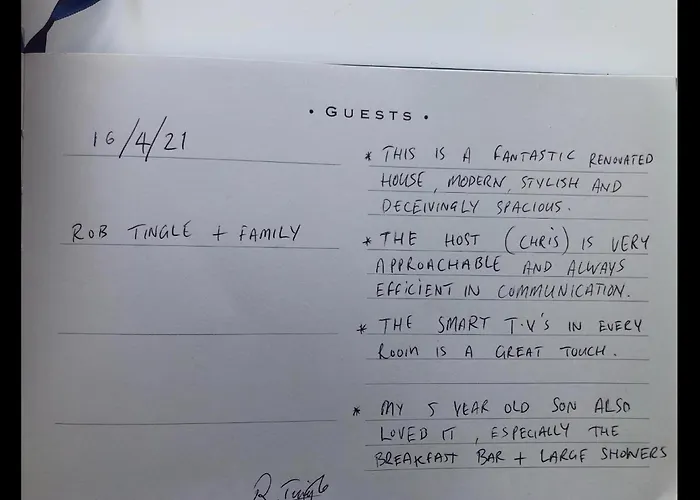 • GUESTS •
16/4/21
ROB TINGLE + FAMILY
* THIS IS A FANTASTIC RENOVATED
HOUSE, MODERN, STYLISH AND
DECEIVINGLY SPACIOUS.
* THE HOST (CHRIS) IS VERY
APPROACHABLE AND ALWAYS
EFFICIENT IN COMMUNICATION.
* THE SMART T.V'S IN EVERY
ROOM IS A GREAT TOUCH.
* MY 5 YEAR OLD SON ALSO
LOVED IT, ESPECIALLY THE
BREAKFAST BAR + LARGE SHOWERS
R Tingle